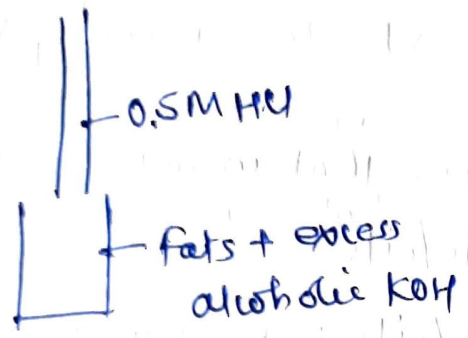 0.5M HCl
fats + excess
alcoholic KOH